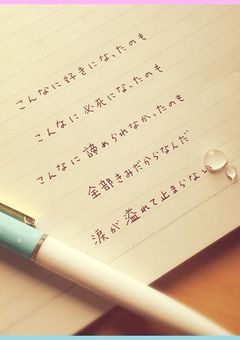 こんなに好きになったのも
こんなに必死になったのも
こんなに諦められなかったのも
全部きみだからなんだ
涙が溢れて止まらない